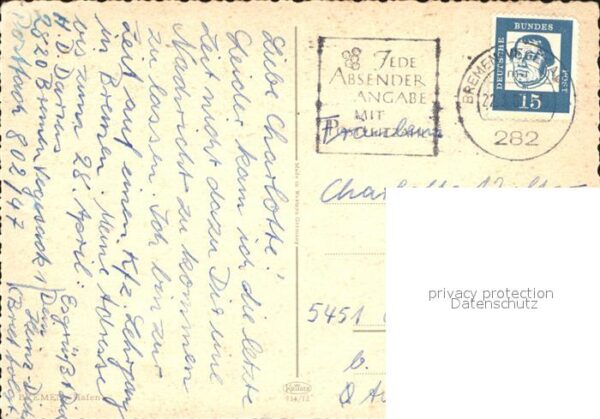 Liebe Charlotte!
Leider kam ich die letzte
Zeit nicht dazu Dir eine
Nachricht zu kommen
zu lassen. Ich bin zur
Zeit auf einen Kfz Lehrgang
in Bremen. Meine Adresse
bis zum 28. April:
H. D. Darius
2820 Bremen Vegesack 1
Postfach 80 82 47
Es grüßt Dein
Heinz-D
BREMEN Hafen
Made in Western Germany
Krüger
914/12
JEDE
ABSENDER
ANGABE
MIT
POSTLEITZAHL
BREMEN-VEGE
282
DEUTSCHE
BUNDES
POST
15
Charlotte
5451
privacy protection
Datenschutz